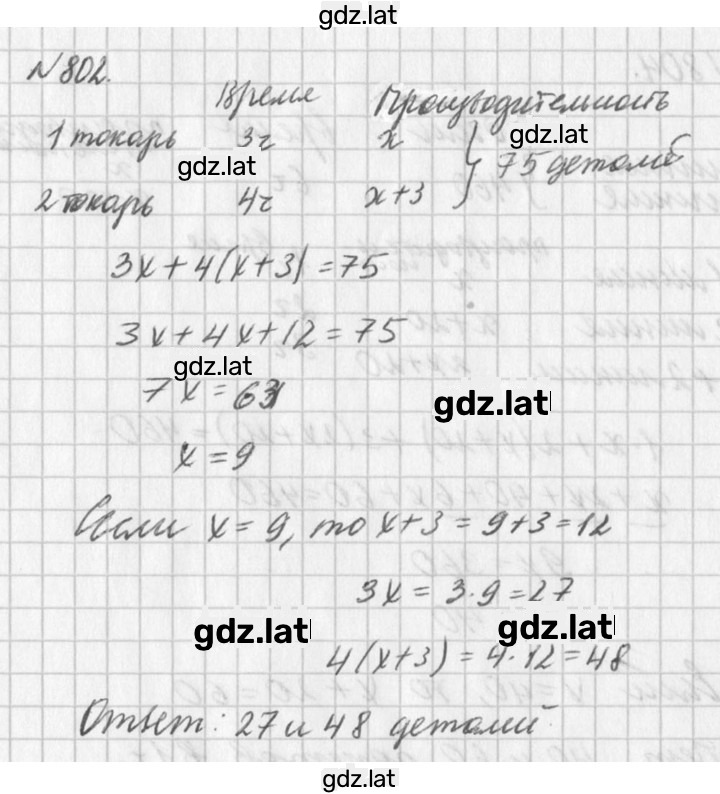 gdz.lat
N 802.
Время Производительность
1 токарь 3ч x
gdz.lat
75 деталей
gdz.lat
2 токарь 4ч x+3
3x+4(x+3)=75
3x+4x+12=75
gdz.lat
7x=63
gdz.lat
x=9
Если x=9, то x+3=9+3=12
3x=3·9=27
gdz.lat
gdz.lat
4(x+3)=4·12=48
Ответ: 27 и 48 деталей
gdz.lat